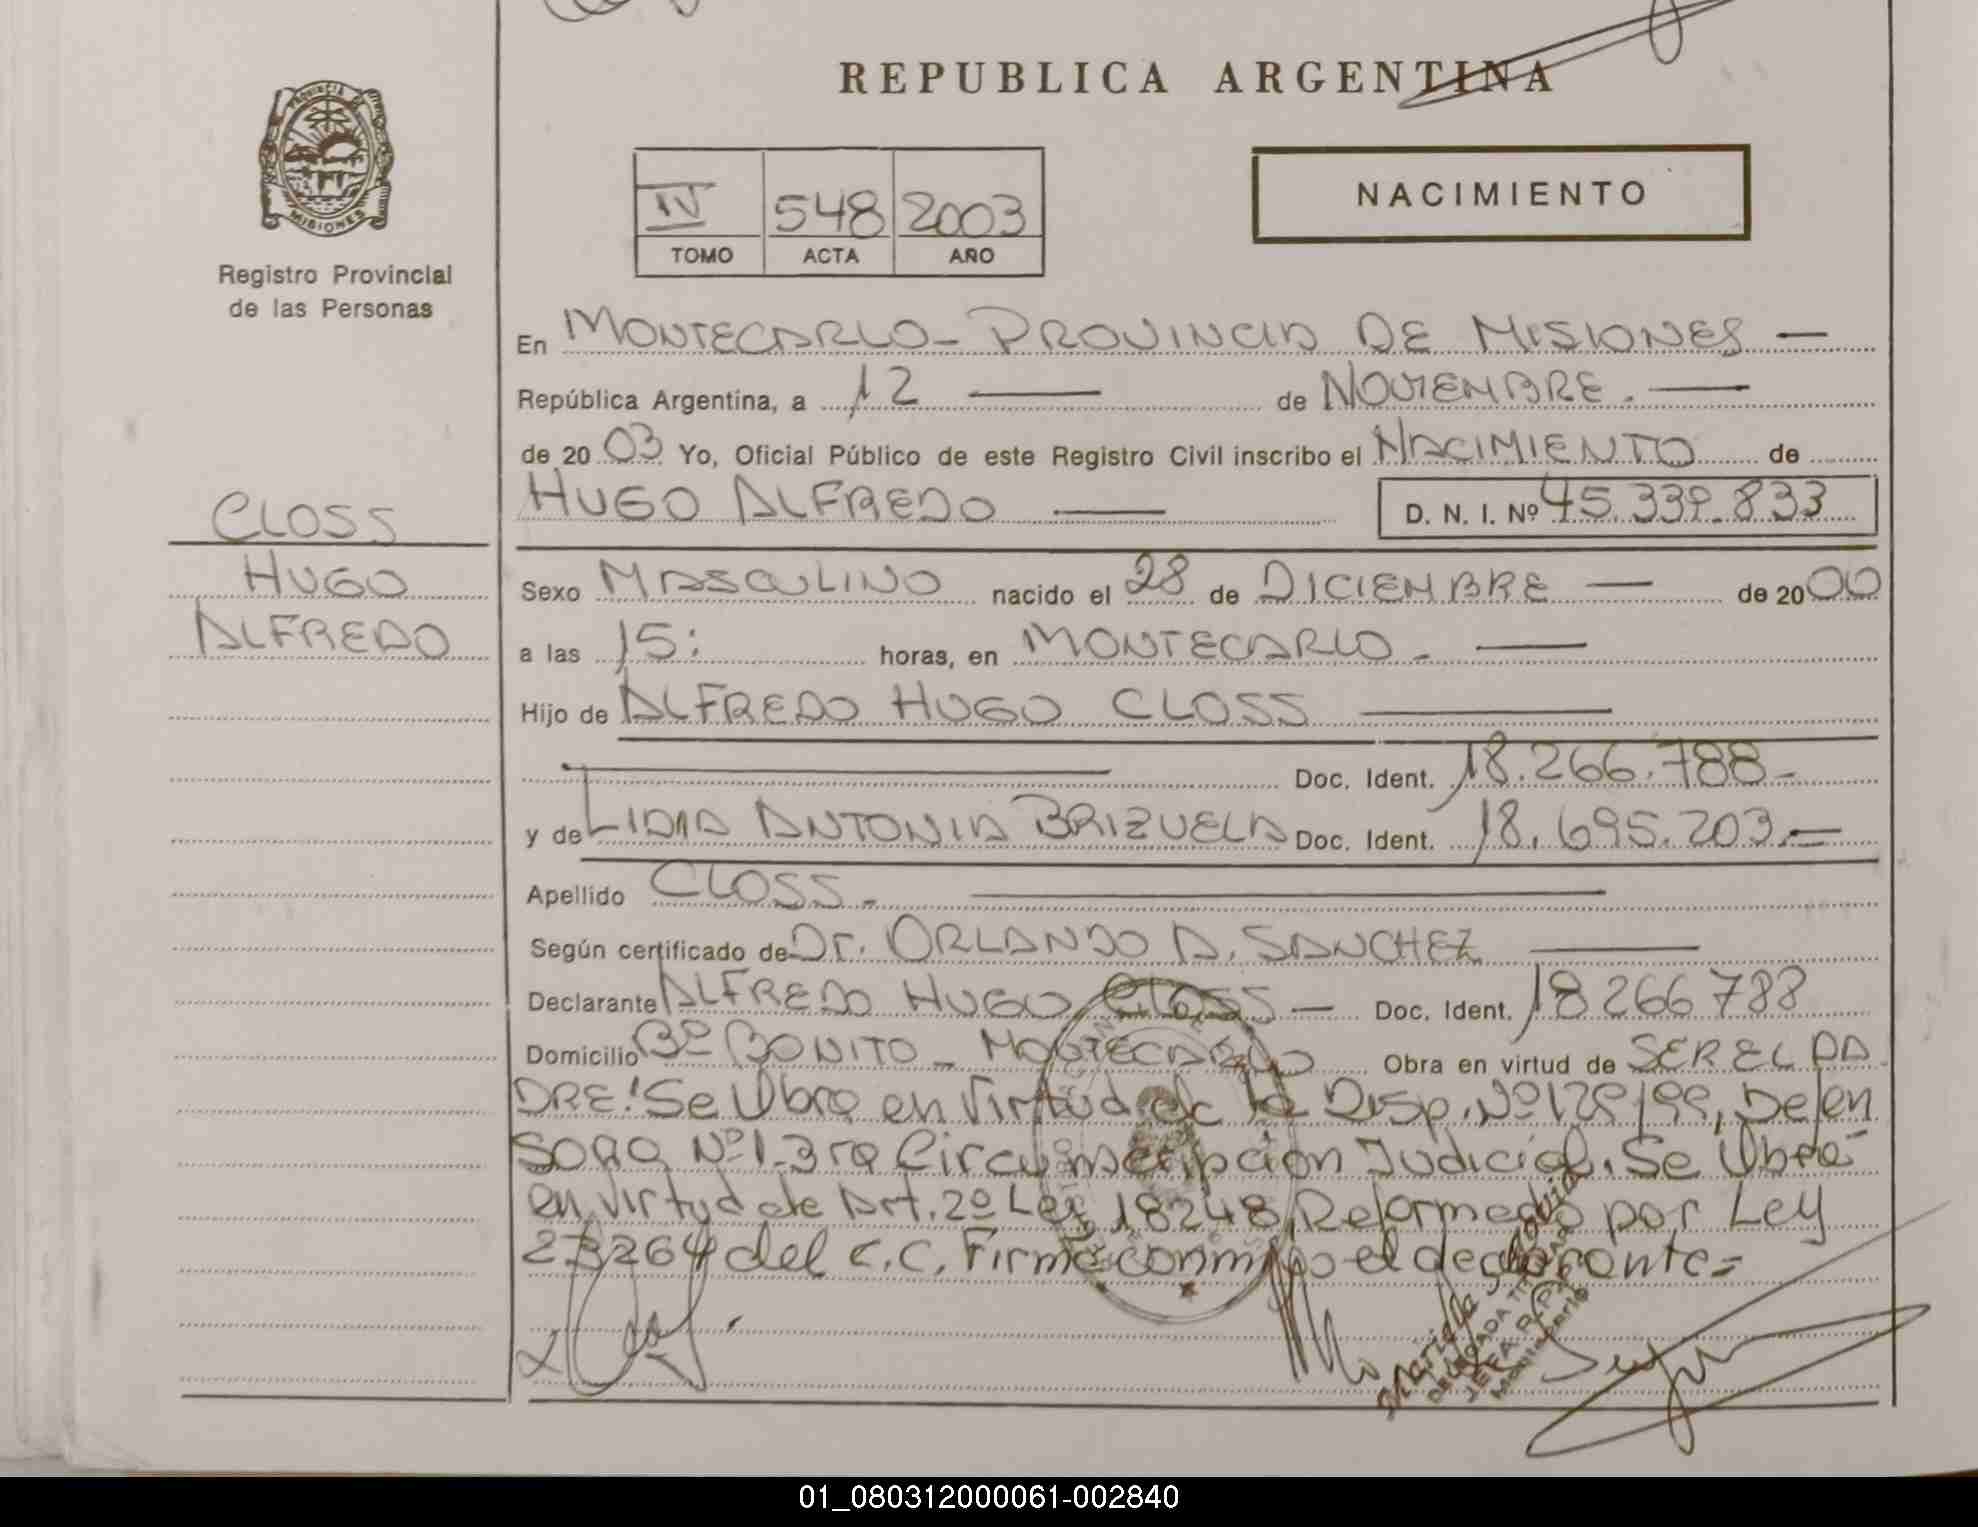 REPUBLICA ARGENTINA
PROVINCIA DE
MISIONES
Registro Provincial
de las Personas
IV 548 2003
TOMO ACTA AÑO
NACIMIENTO
En MONTECARLO - PROVINCIA DE MISIONES —
República Argentina, a 12 — de NOVIEMBRE. —
de 2003 Yo, Oficial Público de este Registro Civil inscribo el NACIMIENTO de
HUGO ALFREDO — D. N. I. Nº 45.339.833
CLOSS
HUGO
ALFREDO
Sexo MASCULINO nacido el 28 de DICIEMBRE — de 2000
a las 15: horas, en MONTECARLO. —
Hijo de ALFREDO HUGO CLOSS —
— Doc. Ident. 18.266.788-
y de LIDIA ANTONIA BRIZUELA Doc. Ident. 18.695.203.=
Apellido CLOSS. —
Según certificado de Dr. ORLANDO A. SANCHEZ —
Declarante ALFREDO HUGO CLOSS — Doc. Ident. 18266788
Domicilio Bº BONITO - MONTECARLO Obra en virtud de SER EL PA
DRE: Se Obra en Virtud de la Disp. Nº 129/99, Defen
sora Nº 1-3ra Circunscripción Judicial. Se Obra
en Virtud de Art. 2º Ley 18248, Reformado por Ley
23264 del C.C. Firma conmigo el declarante=
DELEGADA TITULAR
JEFA R.P.P.
Montecarlo
01_080312000061-002840